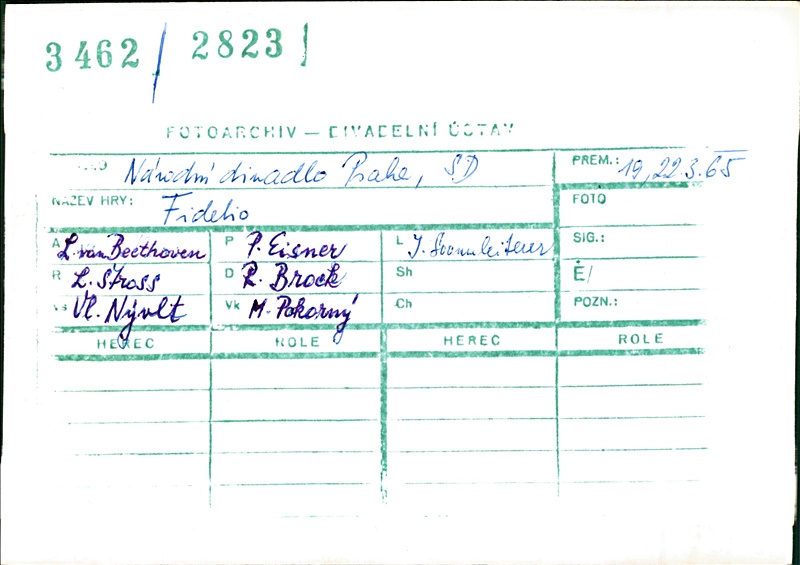 3462/ 2823/
FOTOARCHIV — DIVADELNÍ ÚSTAV
Národní divadlo Praha, SD PREM.: 19, 22.3.65
NÁZEV HRY: Fidelio FOTO
A L. van Beethoven P P. Eisner L SIG.:
R L. Štross D R. Brock Sh Č/
Vs Vl. Nývlt Vk M. Pokorný Ch POZN.:
HEREC ROLE HEREC ROLE